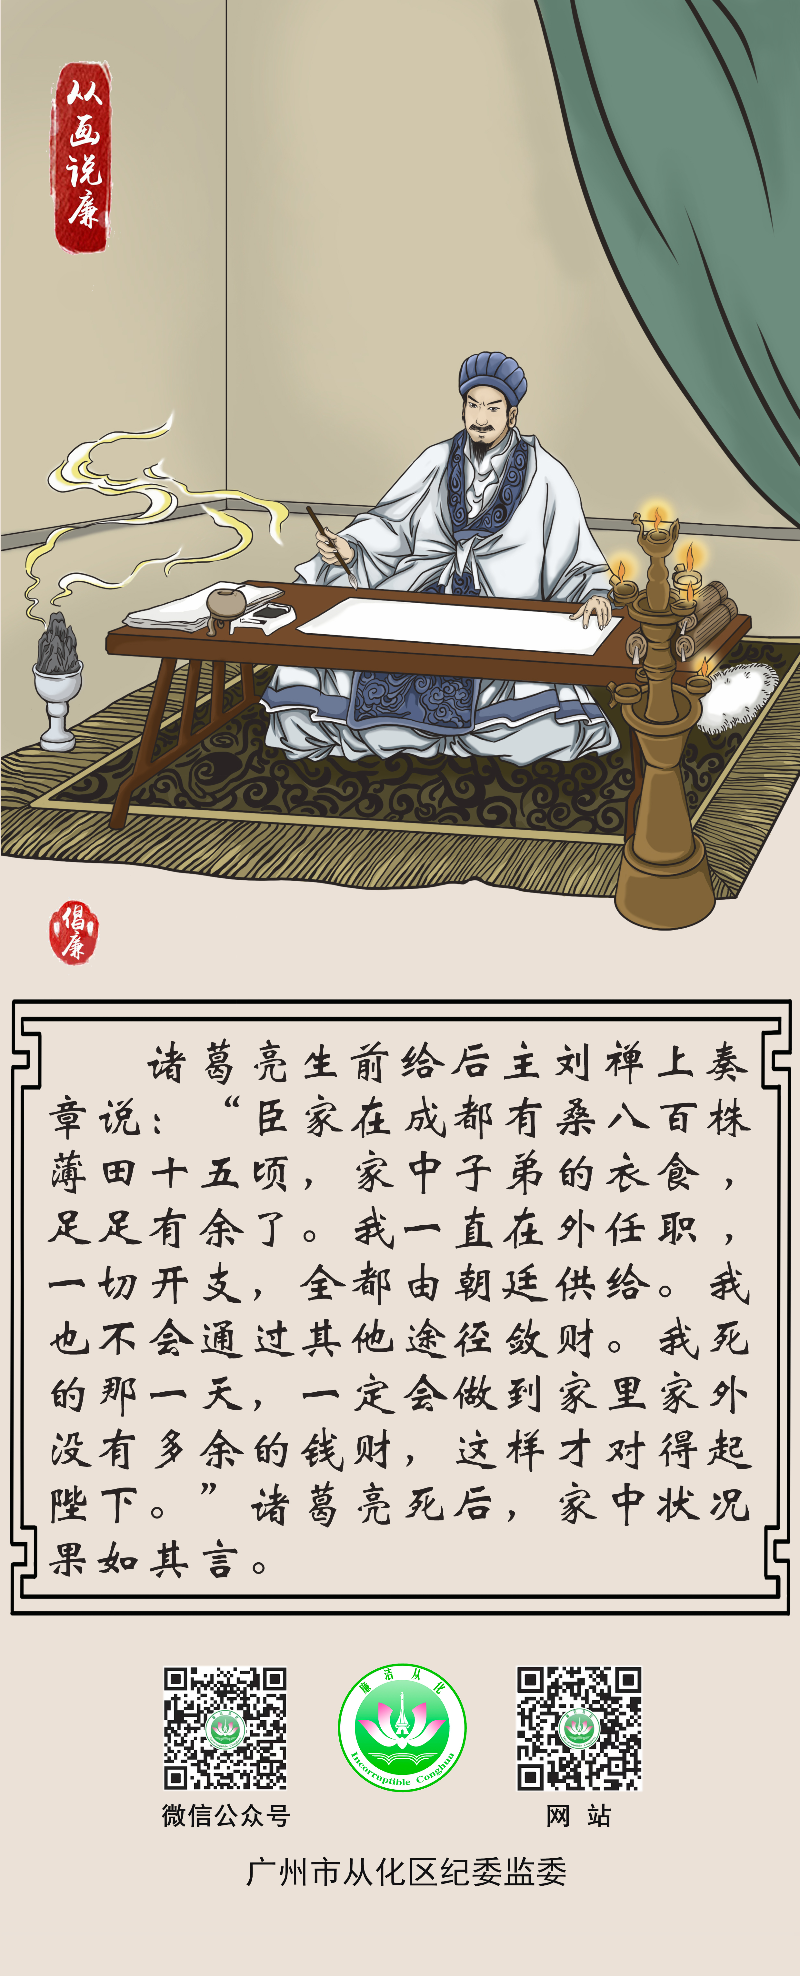 从画说廉
倡廉
诸葛亮生前给后主刘禅上奏
章说：“臣家在成都有桑八百株
薄田十五顷，家中子弟的衣食，
足足有余了。我一直在外任职，
一切开支，全都由朝廷供给。我
也不会通过其他途径敛财。我死
的那一天，一定会做到家里家外
没有多余的钱财，这样才对得起
陛下。”诸葛亮死后，家中状况
果如其言。
廉洁从化
Incorruptible Conghua
微信公众号
网 站
广州市从化区纪委监委